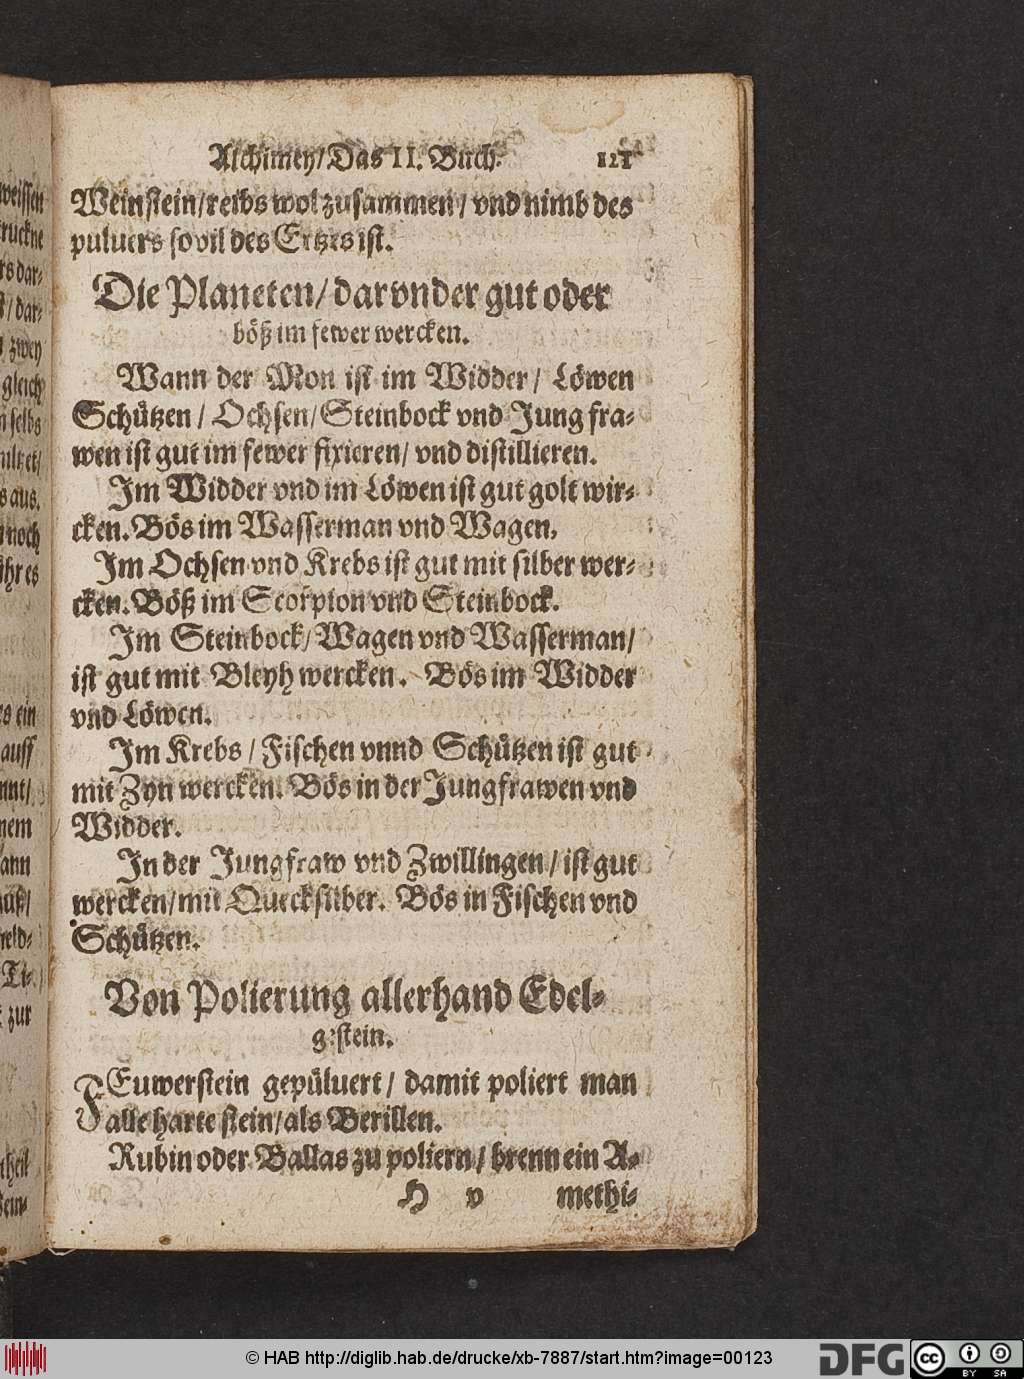 Alchimey/Das II. Buch. 121
Weinstein/reibs wol zusammen/ vnd nimb des
puluers so vil des Ertzes ist.
Die Planeten/ darvnder gut oder
böß im fewer wercken.
Wann der Mon ist im Widder/ Löwen
Schützen/ Ochsen/ Steinbock vnd Jungfra-
wen ist gut im fewer fixieren/ vnd distillieren.
Im Widder vnd im Löwen ist gut golt wir-
cken. Bös im Wasserman vnd Wagen.
Im Ochsen vnd Krebs ist gut mit silber wer-
cken. Böß im Scorpion vnd Steinbock.
Im Steinbock/ Wagen vnd Wasserman/
ist gut mit Bleyh wercken. Bös im Widder
vnd Löwen.
Im Krebs/ Fischen vnnd Schützen ist gut
mit Zyn wercken. Bös in der Jungfrawen vnd
Widder.
In der Jungfraw vnd Zwillingen/ ist gut
wercken/mit Quecksilber. Bös in Fischen vnd
Schützen.
Von Polierung allerhand Edel-
gestein.
FEuwerstein gepüluert/ damit poliert man
alle harte stein/als Berillen.
Rubin oder Ballas zu poliern/ brenn ein A-
H v methi-
weissen
ruckne
rs dar-
st/ dar-
zwey
gleich
selbs
s aus.
noch
ihr es
es ein
auff
nnt/
nem
ann
reld-
Ti-
zur
theil
© HAB http://diglib.hab.de/drucke/xb-7887/start.htm?image=00123
DFG
CC BY SA